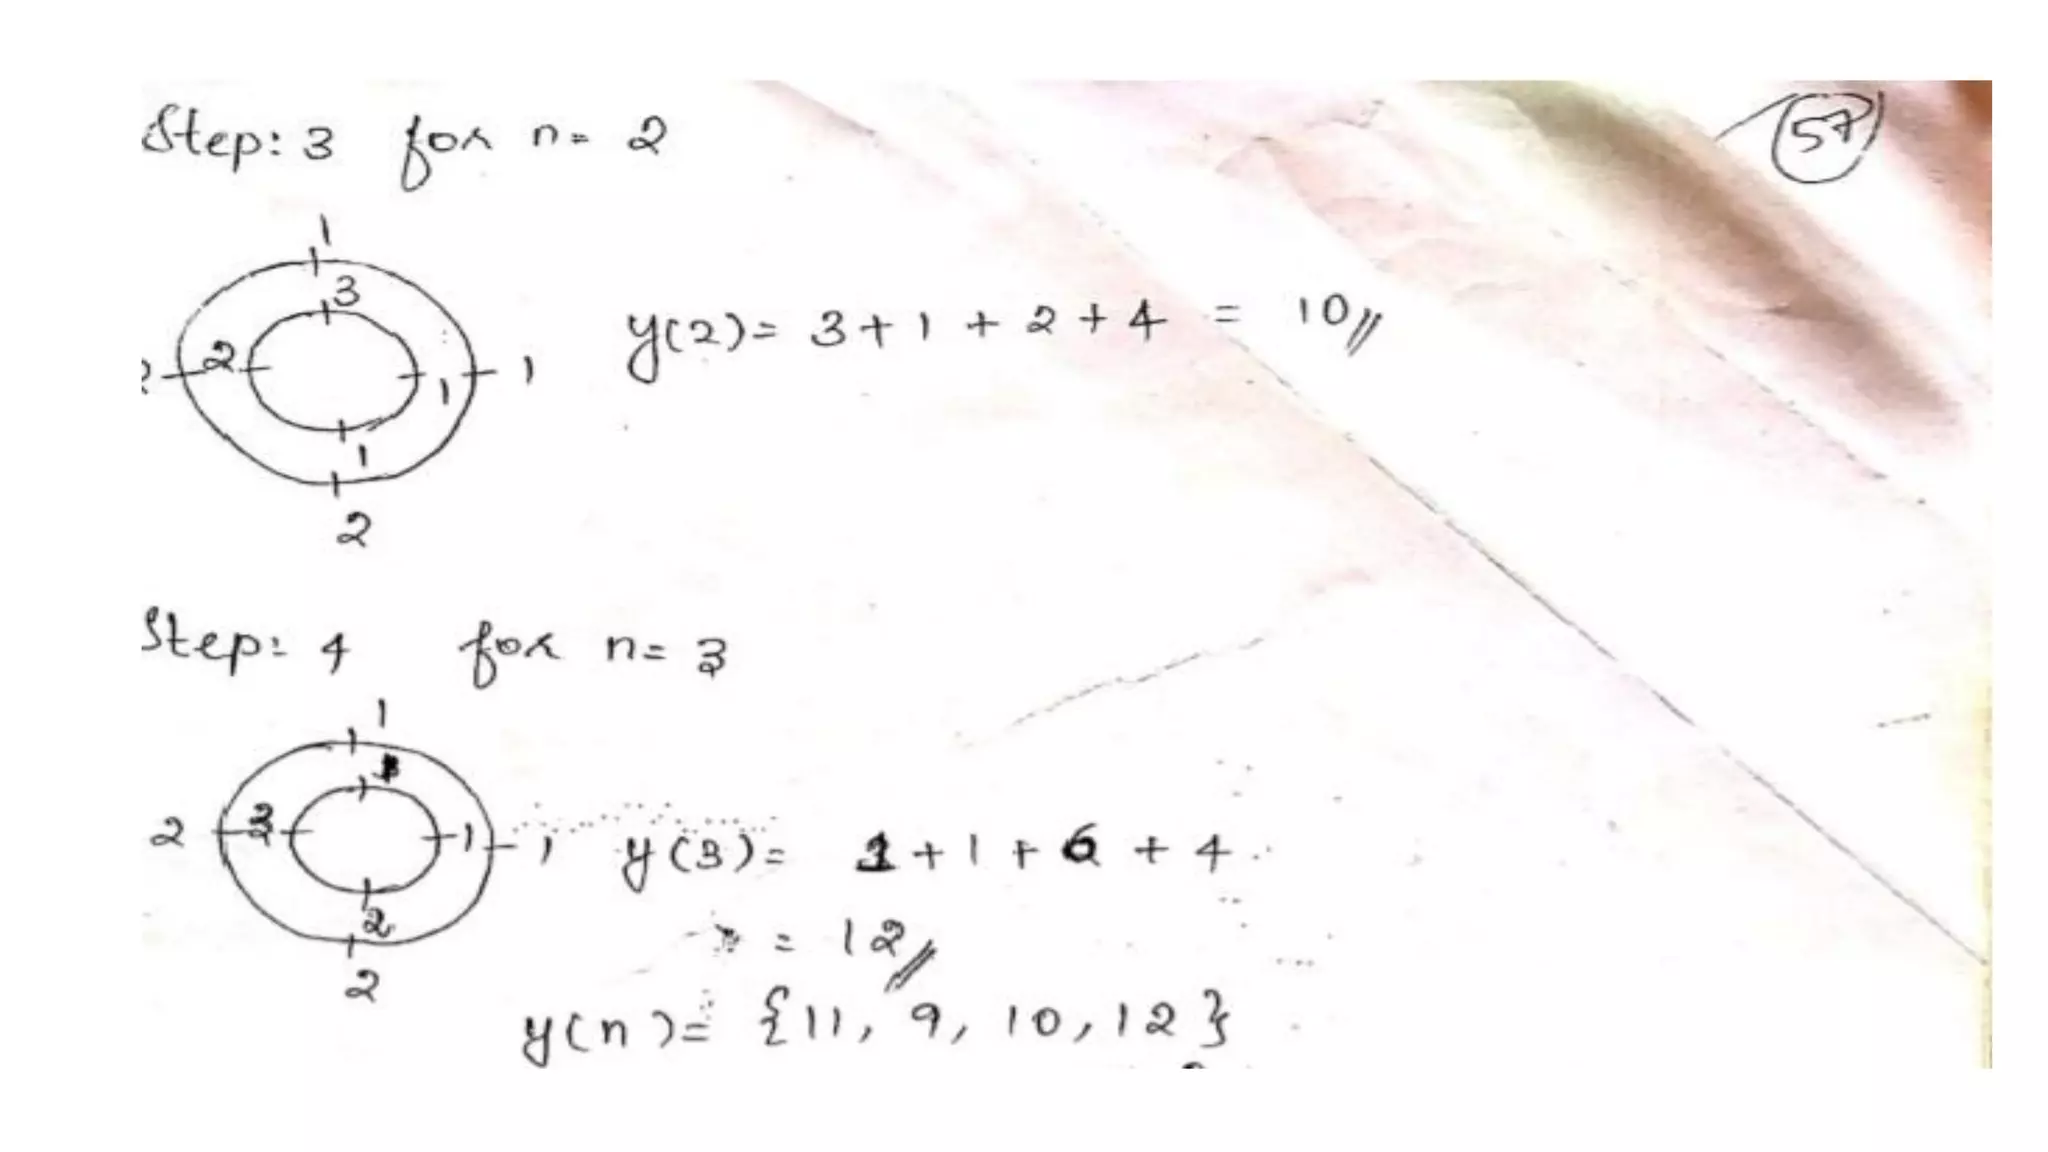 Step: 3 for n = 2
57
1
3
2
1
1
1
2
y(2) = 3 + 1 + 2 + 4 = 10//
Step: 4 for n = 3
1
2
3
1
1
2
2
y(3) = 1 + 1 + 6 + 4
= 12//
y(n) = {11, 9, 10, 12}